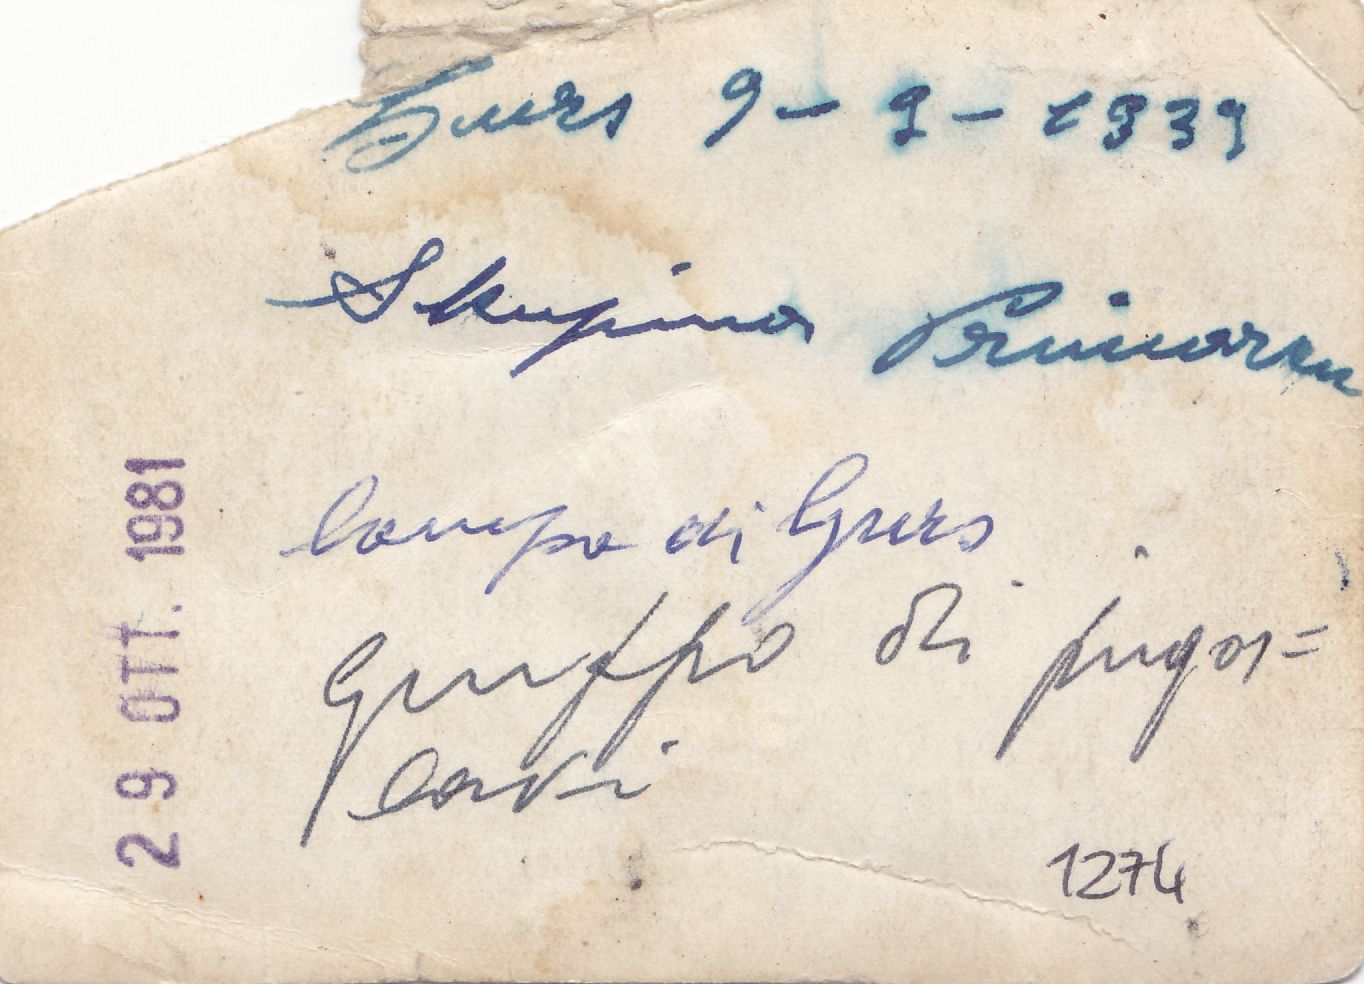 Gurs 9 - 9 - 1939
Skupina
Campo di Gurs
gruppo di jugos=
lavi
29 OTT. 1981
1274